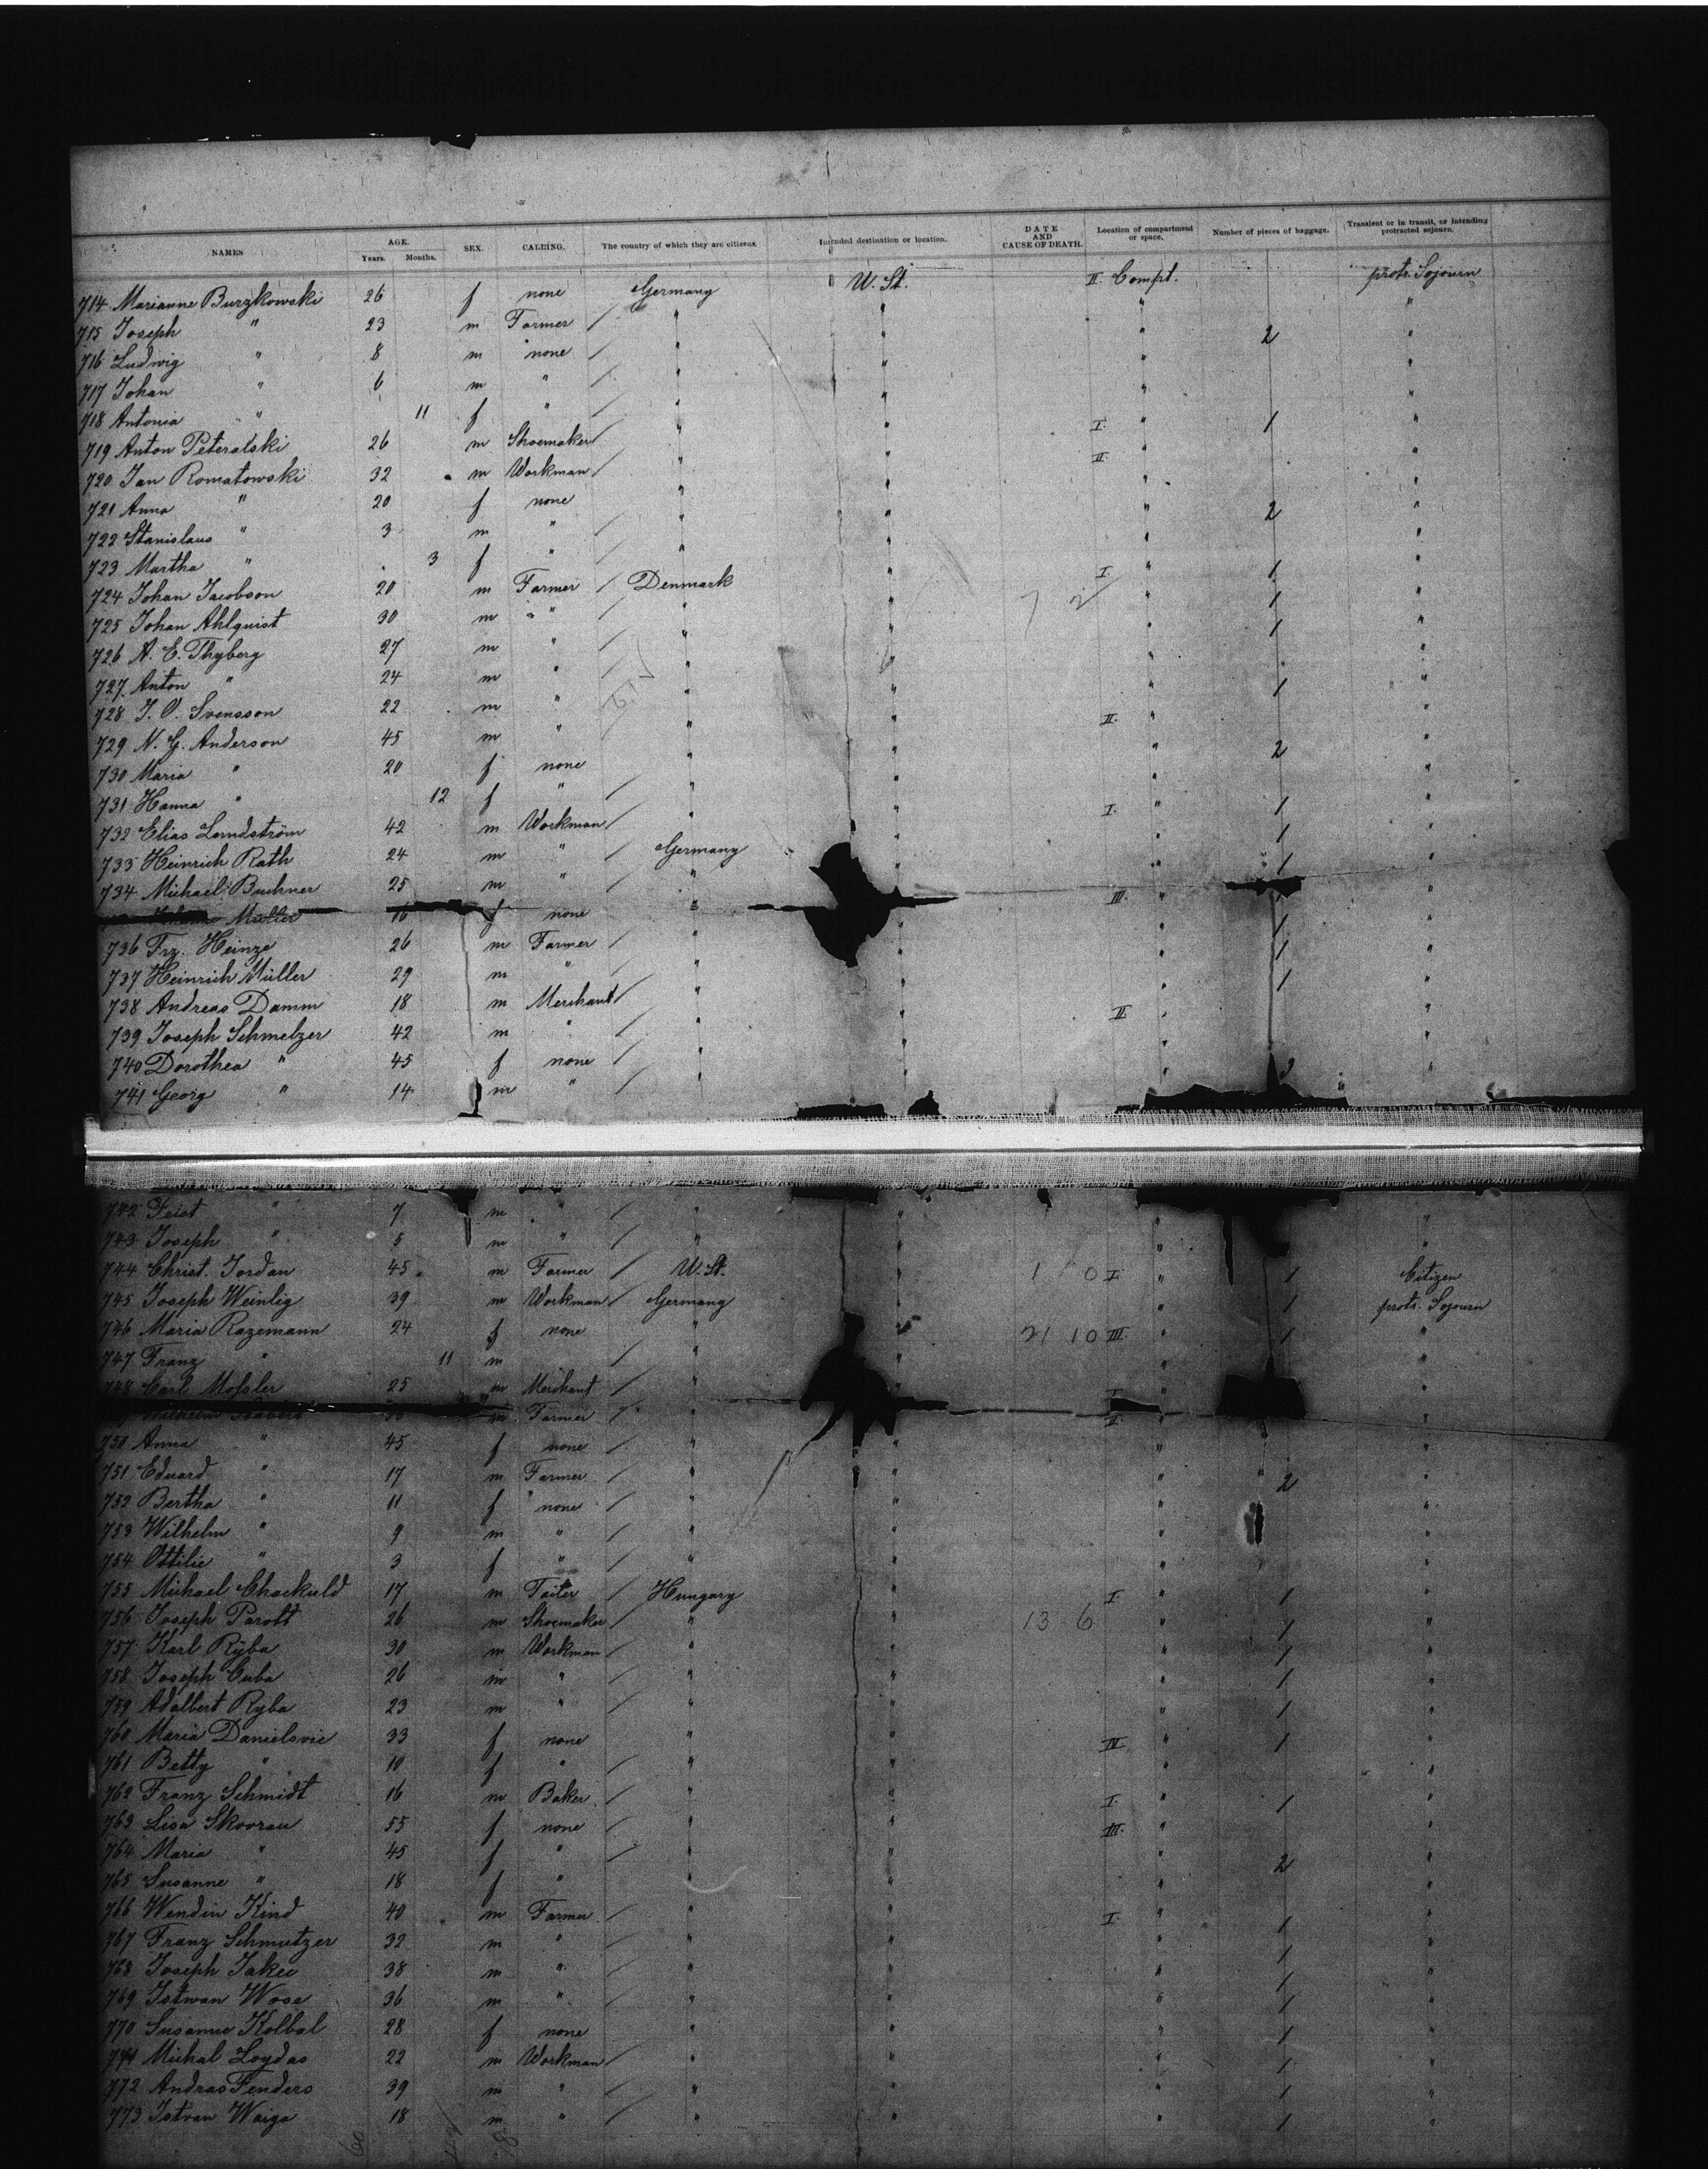 NAMES AGE. Years. Months. SEX. CALLING. The country of which they are citizens. Intended destination or location. DATE AND CAUSE OF DEATH. Location of compartment or space. Number of pieces of baggage. Transient or in transit, or intending protracted sojourn.
714 Marianne Burzkowski 26 f none Germany U. St. II Compt. protr. Sojourn
715 Joseph " 23 m Farmer / " " " 2 "
716 Ludwig " 8 m none / " " " "
717 Johan " 6 m " / " " " "
718 Antonia " 11 f " / " " " "
719 Anton Peteralski 26 m Shoemaker / " " I. " 1 "
720 Jan Romatowski 32 m Workman / " " II. " "
721 Anna " 20 f none " " " "
722 Stanislaus " 3 m " / " " " 2 "
723 Martha " 3 f " / " " " "
724 Johan Jacobson 20 m Farmer / Denmark " I. " 1 "
725 Johan Ahlquist 30 m " / " " " 1 "
726 A. E. Thyberg 27 m " / " " " 1 "
727 Anton " 24 m " / " " " "
728 J. O. Svensson 22 m " / " " " 1 "
729 N. G. Anderson 45 m " / " " II. " "
730 Maria " 20 f none " " " 2 "
731 Hanna " 12 f " / " " " "
732 Elias Lundström 42 m Workman / " " I. " 1 "
733 Heinrich Rath 24 m " / Germany " " 1 "
734 Michael Buchner 25 m " / " " " 1 "
Müller 16 f none " " III. " "
736 Frz. Heinze 26 m Farmer / " " " 1 "
737 Heinrich Müller 29 m " / " " " 1 "
738 Andreas Damm 18 m Merchant / " " " 1 "
739 Joseph Schmelzer 42 m " / " " II. " "
740 Dorothea " 45 f none / " " " "
741 Georg " 14 m " / " " " 3 "
742 Feist " 7 m " / " " " "
743 Joseph " 5 m " / " " " "
744 Christ. Jordan 45 m Farmer / U. St. " 1 0 I. " 1 Citizen
745 Joseph Weinlig 39 m Workman / Germany " " 1 protr. Sojourn
746 Maria Razemann 24 f none " " 21 10 III. " 1 "
747 Franz " 11 m / " " " "
748 Carl Moßler 25 m Merchant / " " I. " "
Wilhelm m Farmer / " " II. " "
750 Anna " 45 f none / " " " "
751 Eduard " 17 m Farmer / " " " 2 "
752 Bertha " 11 f none / " " " "
753 Wilhelm " 9 m " / " " " "
754 Ottilie " 3 f " / " " " "
755 Michael Chackuld 17 m / Hungary " I. " 1 "
756 Joseph Parott 26 m Shoemaker / " " 13 6 " 1 "
757 Karl Ryba 30 m Workman / " " " 1 "
758 Joseph Cuba 26 m " / " " " 1 "
759 Adalbert Ryba 23 m " / " " " 1 "
760 Maria Danielsvic 33 f none " " IV " 1 "
761 Betty " 10 f " / " " " "
762 Franz Schmidt 16 m Baker / " " I. " 1 "
763 Lisa Skoorau 55 f none / " " III. " "
764 Maria " 45 f " / " " " 2 "
765 Susanne " 18 f " " " " "
766 Wendin Kind 40 m Farmer / " " I. " 1 "
767 Franz Schmutzer 32 m " / " " " 1 "
768 Joseph Jakec 38 m " / " " " 1 "
769 Istwan Wose 36 m " / " " " 1 "
770 Susanne Kolbal 28 f none " " " 1 "
771 Michal Loydas 22 m Workman / " " " 1 "
772 Andras Fenders 39 m " / " " " 1 "
773 Istvan Waiga 18 m " / " " " 1 "